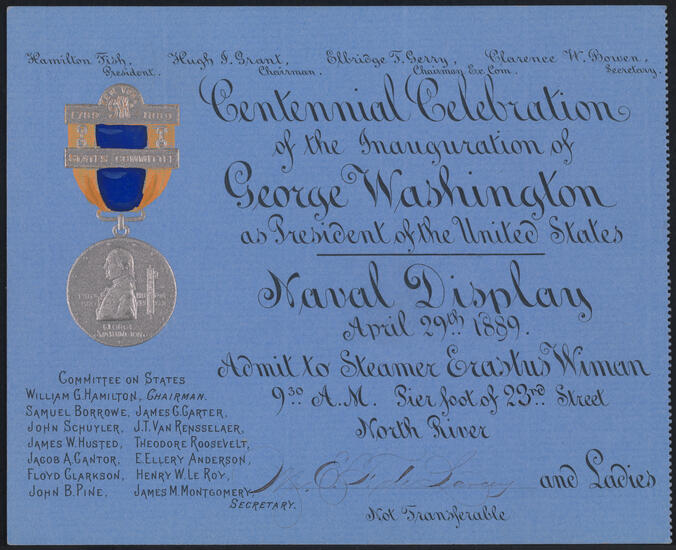 Hamilton Fish, Hugh J. Grant, Elbridge T. Gerry, Clarence W. Bowen,
President. Chairman. Chairman Ex. Com. Secretary.
NEW YORK
1789 1889
STATES COMMITTEE
GEORGE
WASHINGTON
Centennial Celebration
of the Inauguration of
George Washington
as President of the United States
Naval Display
April 29th 1889.
Admit to Steamer Erastus Wiman
9 30 A.M. Pier foot of 23rd Street
North River
and Ladies
Not Transferable
COMMITTEE ON STATES
WILLIAM G. HAMILTON, CHAIRMAN.
SAMUEL BORROWE, JAMES C. CARTER,
JOHN SCHUYLER, J.T. VAN RENSSELAER,
JAMES W. HUSTED, THEODORE ROOSEVELT,
JACOB A. CANTOR, E. ELLERY ANDERSON,
FLOYD CLARKSON, HENRY W. LE ROY,
JOHN B. PINE, JAMES M. MONTGOMERY,
SECRETARY.